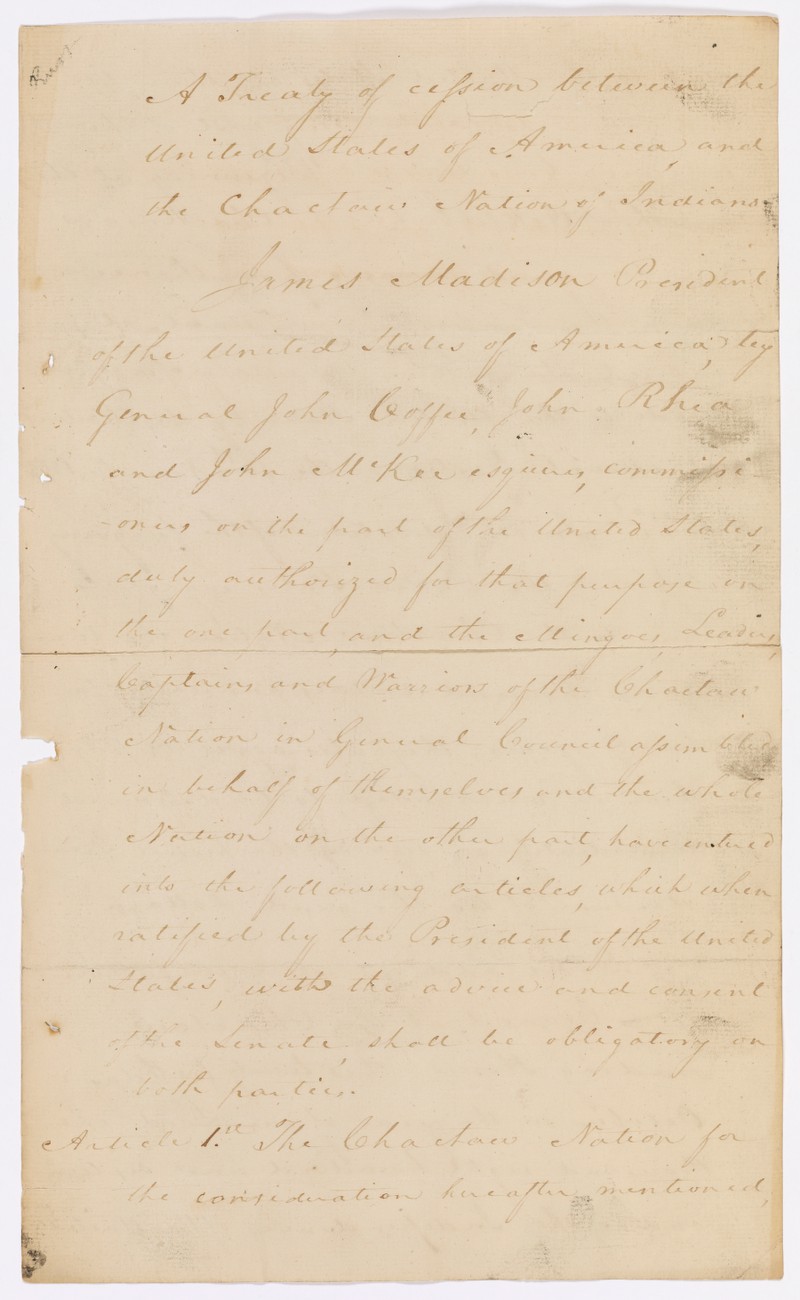 A Treaty of cession between the
United States of America, and
the Chactaw Nation of Indians.
James Madison President
of the United States of America, by
General John Coffee, John Rhea
and John McKee esquires, commissi-
-oners on the part of the United States,
duly authorized for that purpose on
the one part, and the Mingoes, Leaders,
Captains and Warriors of the Chactaw
Nation in General Council assembled
in behalf of themselves and the whole
Nation on the other part, have entered
into the following articles, which when
ratified by the President of the United
States, with the advice and consent
of the Senate, shall be obligatory on
both parties.
Article 1.st The Chactaw Nation for
the consideration hereafter mentioned,